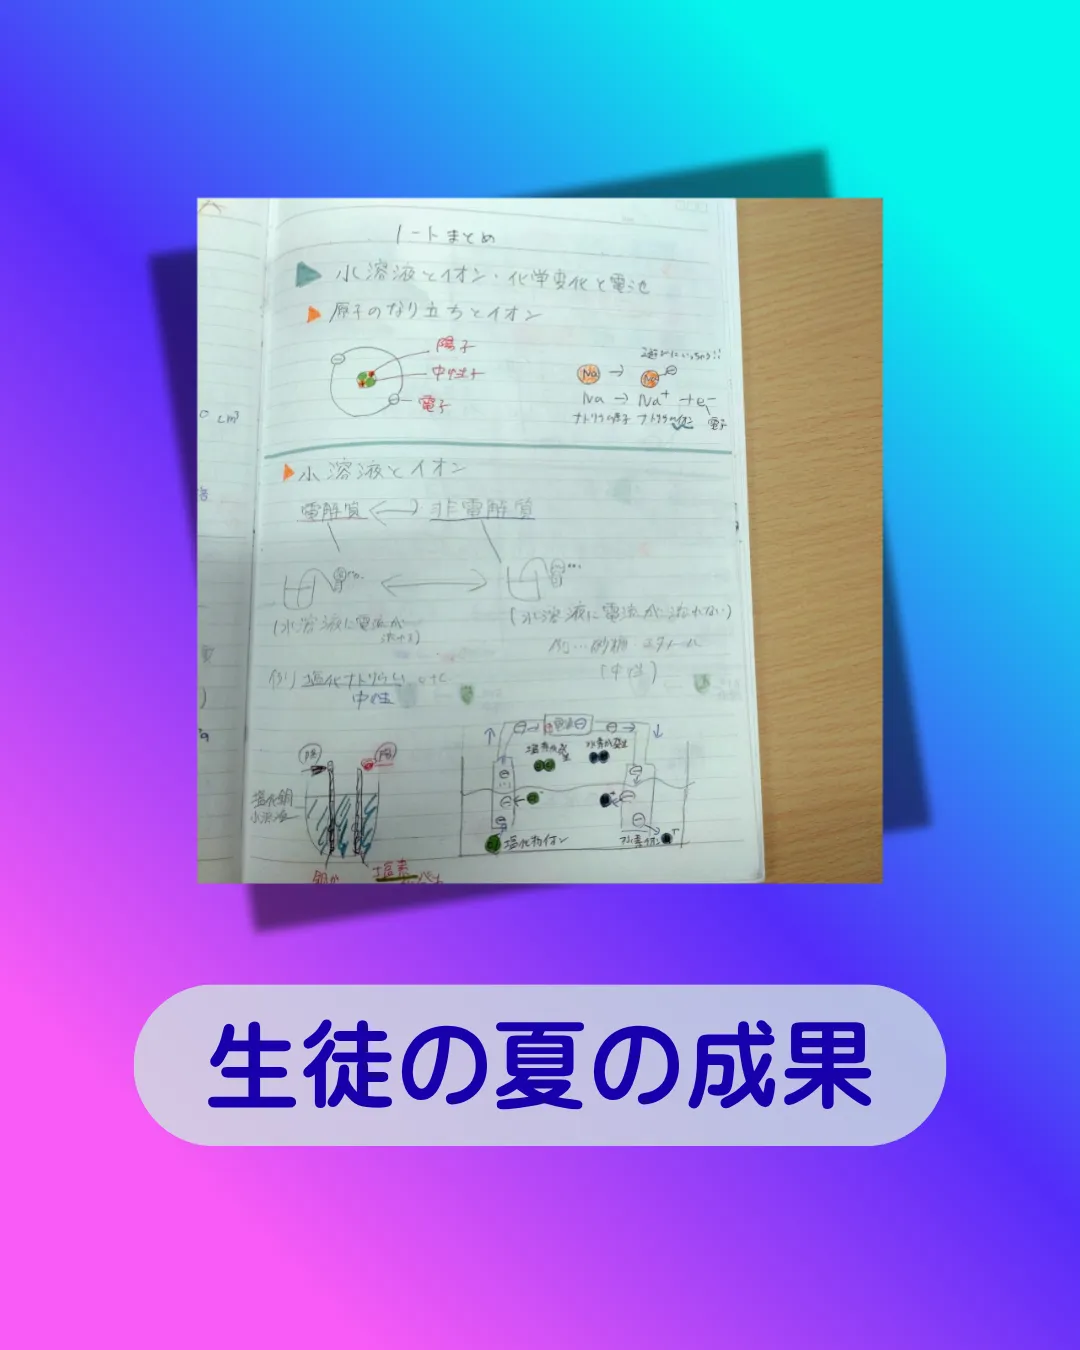 ノートまとめ
水溶液とイオン・化学変化と電池
原子のなり立ちとイオン
陽子
中性子
電子
遊びにいっちゃう!!
Na → Na ⊖
Na → Na⁺ + e⁻
ナトリウム原子 ナトリウムイオン 電子
水溶液とイオン
電解質 ⟷ 非電解質
(水溶液に電流が流れる)
(水溶液に電流が流れない)
例…砂糖・エタノール
(中性)
例) 塩化ナトリウム etc
中性
塩素が発生
水素が発生
塩化銅
水溶液
塩化物イオン
水素イオン
塩素
cm³
生徒の夏の成果